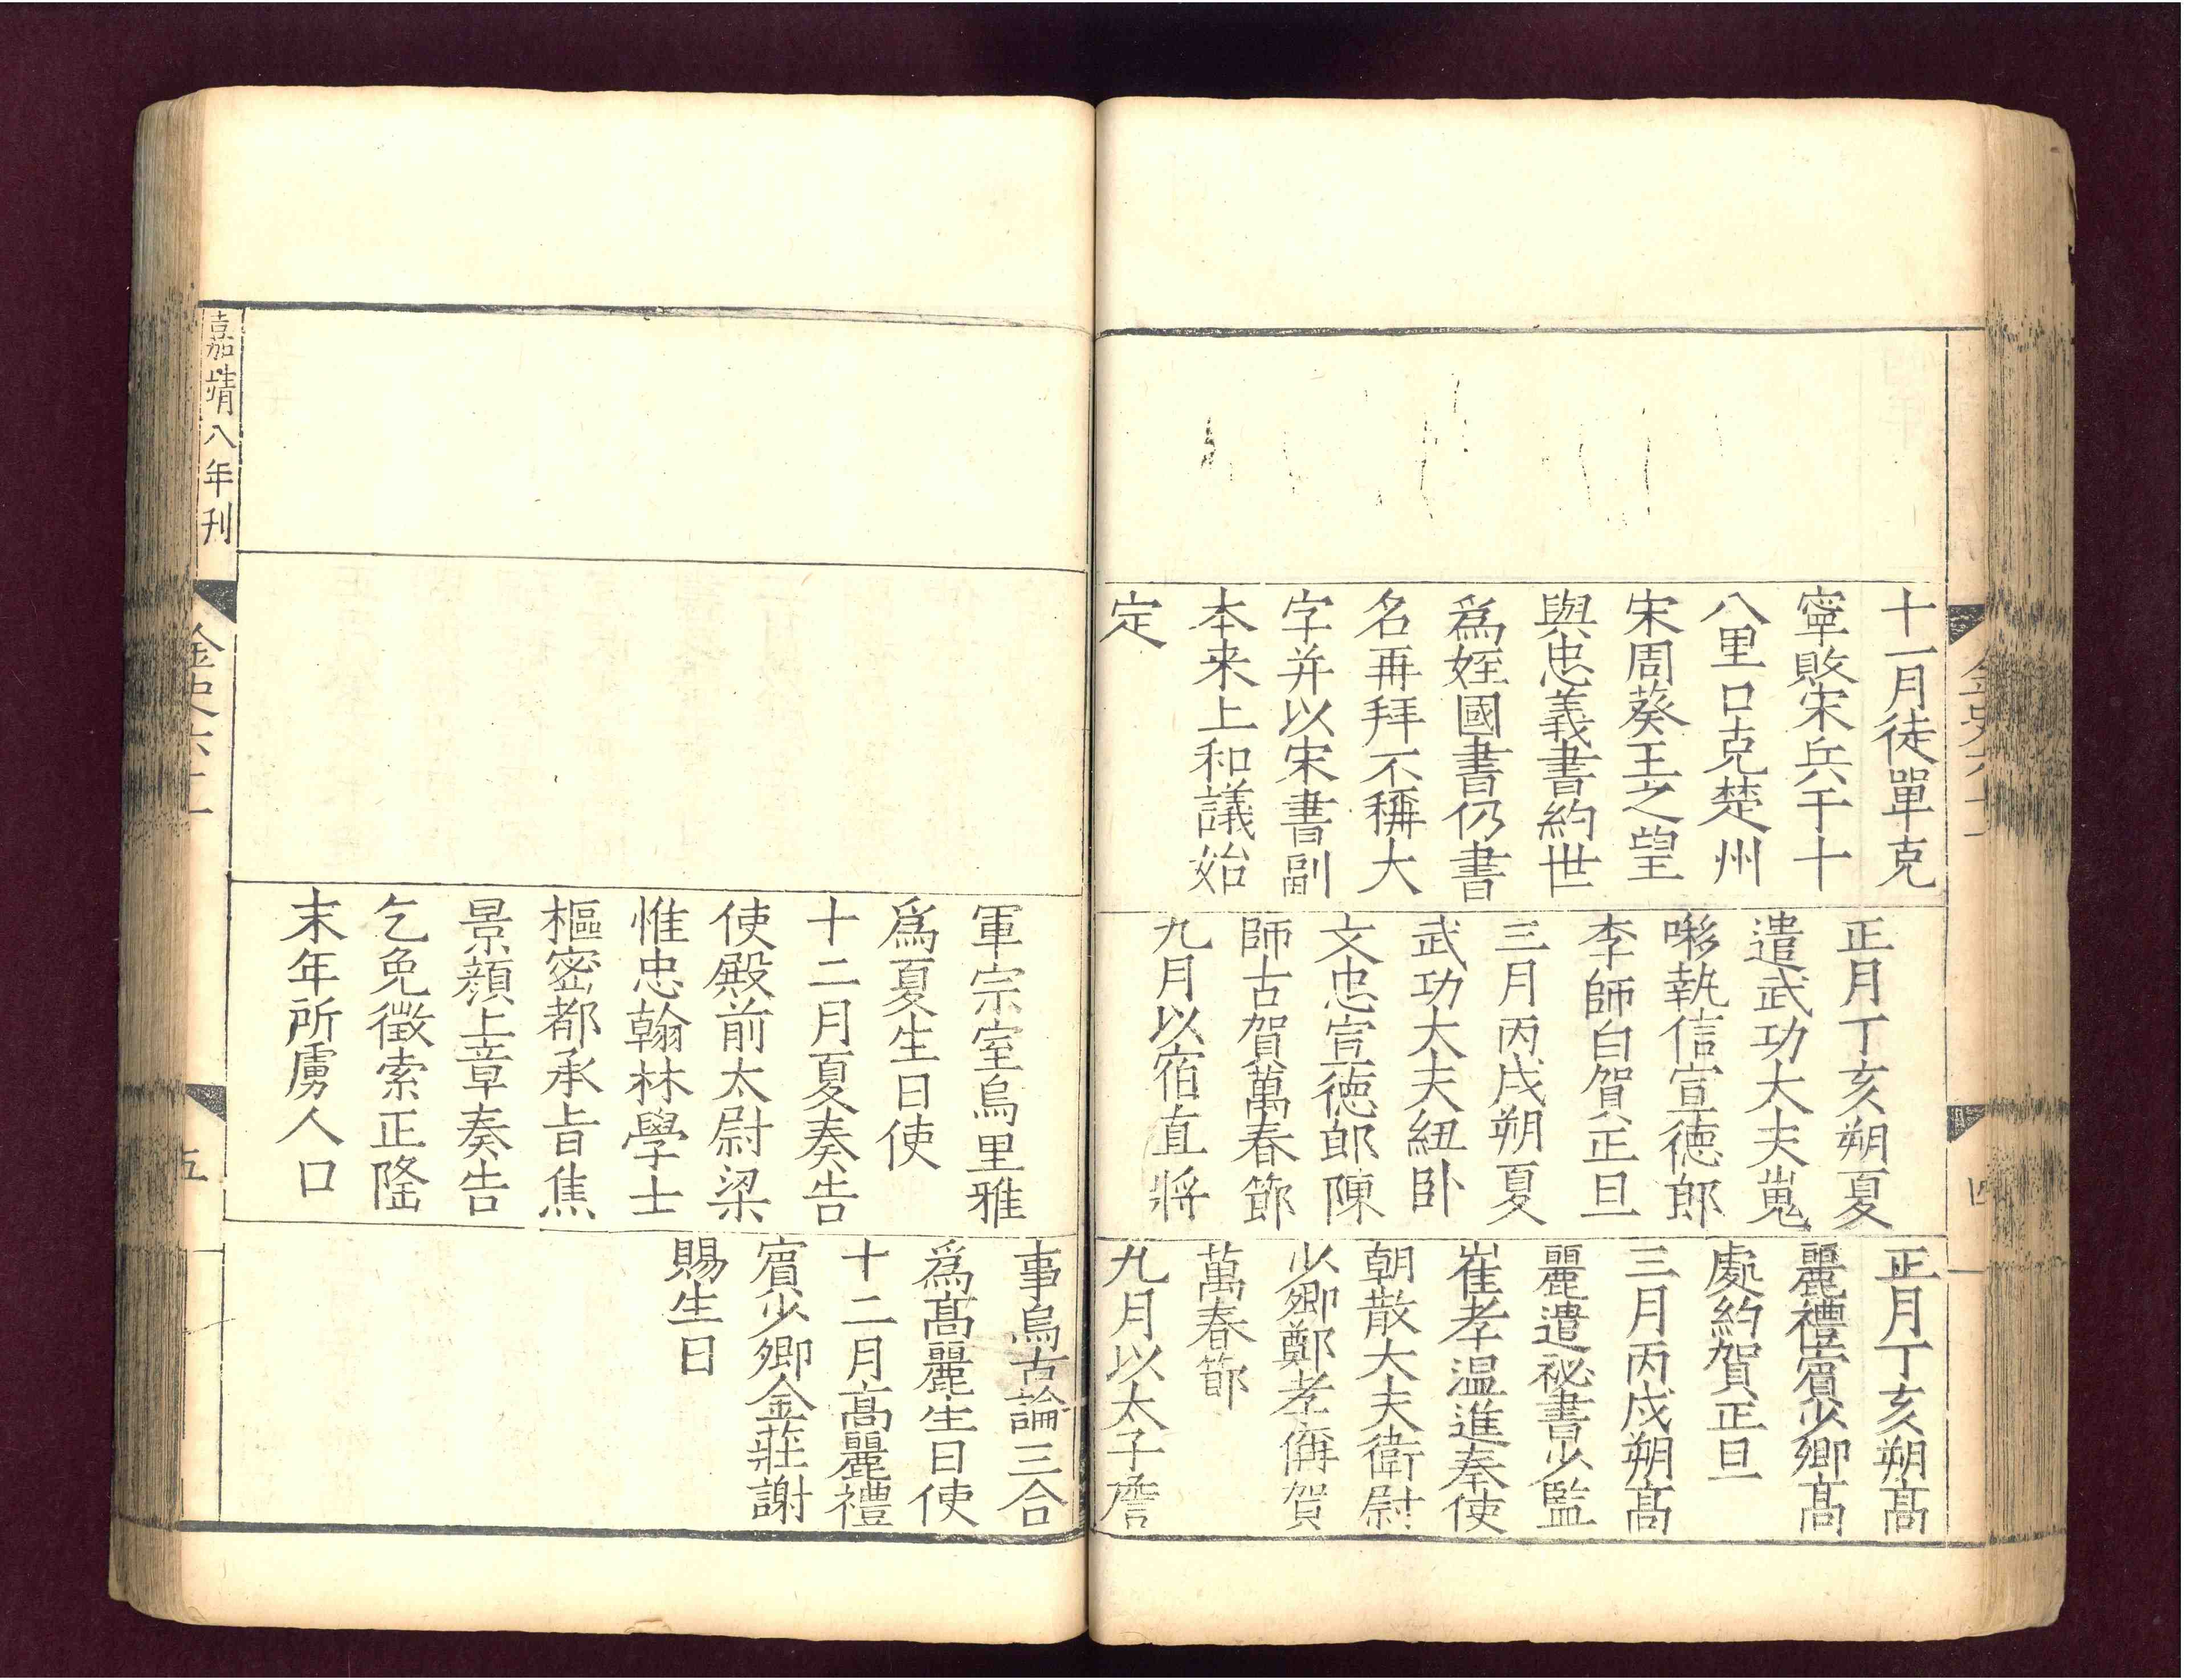 金史六十一
四
十一月徒單克
寧敗宋兵于十
八里口克楚州
宋周葵王之望
與忠義書約世
爲姪國書仍書
名再拜不稱大
字并以宋書副
本来上和議始
定
正月丁亥朔夏
遣武功大夫嵬
㖼執信宣德郎
李師白賀正旦
三月丙戌朔夏
武功大夫紐卧
文忠宣德郎陳
師古賀萬春節
九月以宿直將
正月丁亥朔髙
麗禮賓少卿髙
處約賀正旦
三月丙戌朔髙
麗遣祕書少監
崔孝温進奉使
朝散大夫衛尉
少卿鄭孝偁賀
萬春節
九月以太子詹
軍宗室烏里雅
爲夏生日使
十二月夏奏告
使殿前太尉梁
惟忠翰林學士
樞密都承旨焦
景顔上章奏告
乞免徵索正隆
末年所虜人口
事烏古論三合
爲髙麗生日使
十二月髙麗禮
賓少卿金莊謝
賜生日
嘉靖八年刊
金史六十一
五